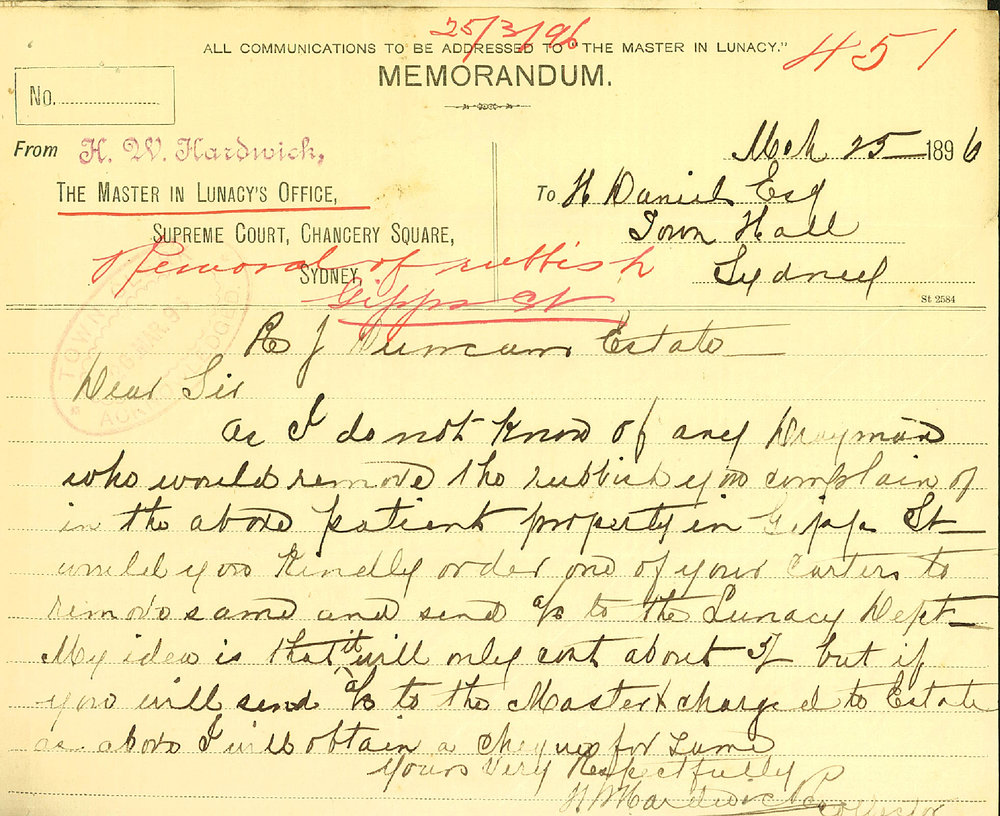 25/3/96
ALL COMMUNICATIONS TO BE ADDRESSED TO "THE MASTER IN LUNACY."
451
MEMORANDUM.
No.
From H. W. Hardwick,
THE MASTER IN LUNACY'S OFFICE,
SUPREME COURT, CHANCERY SQUARE,
SYDNEY,
Mch 25 1896
To H Daniels Esq
Town Hall
Sydney
St 2584
Removal of rubbish
Gipps St
TOWN
Re J Duncans Estate
Dear Sir
As I do not know of any Drayman
who would remove the rubbish you complain of
in the above patient property in Gipps St
would you kindly order one of your Carters to
remove same and send a/c to the Lunacy Dept
My idea is that it will only cost about but if
you will send a/c to the Master & charged to Estate
as above I will obtain a cheque for same
Yours Very Respectfully
H W Hardwick
Collector